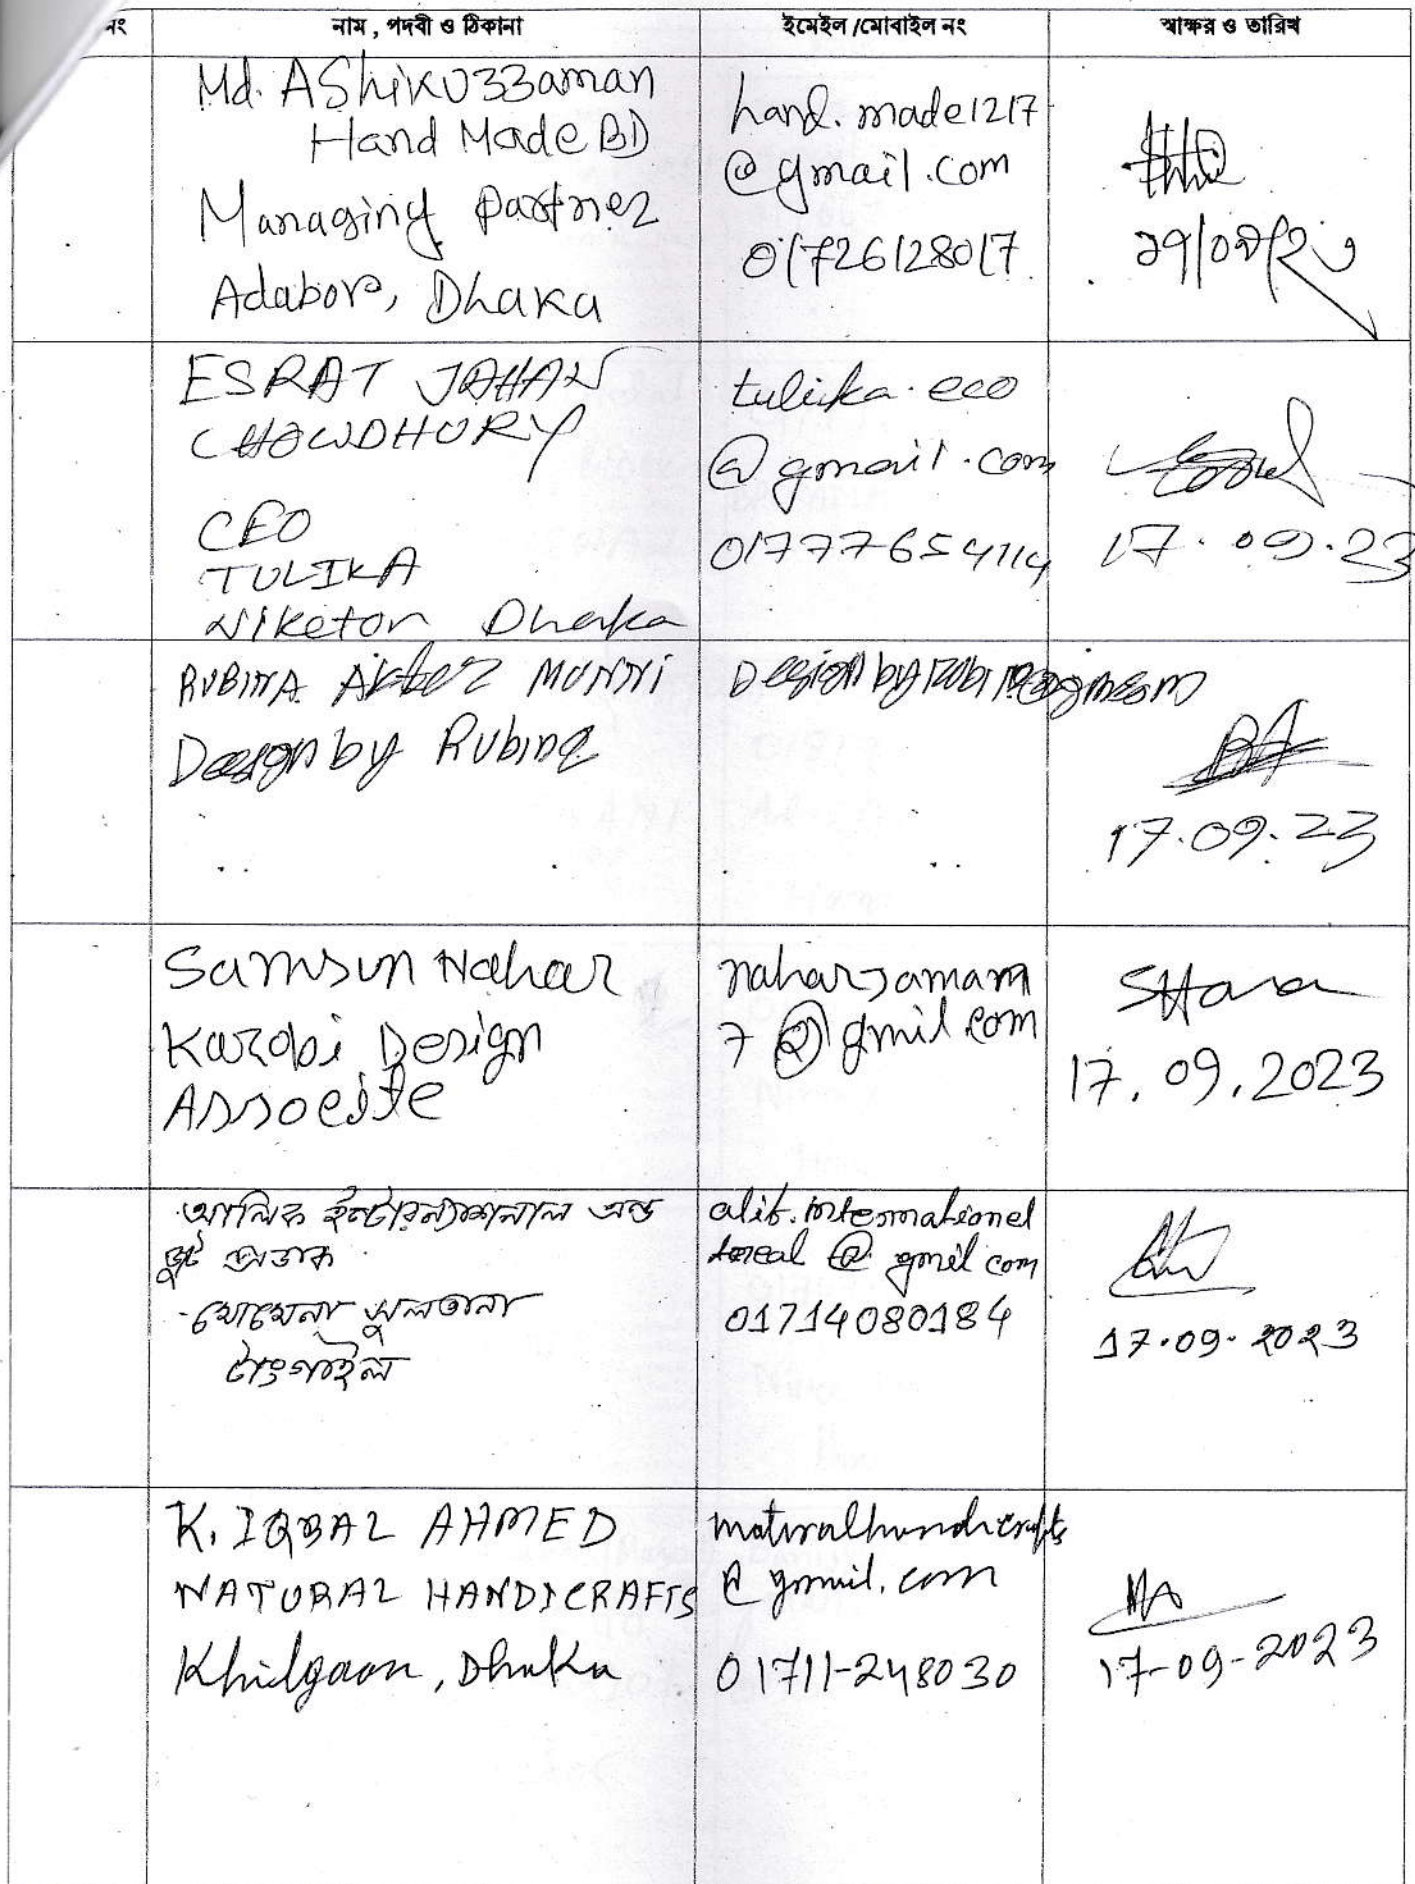 নং
নাম , পদবী ও ঠিকানা
ইমেইল /মোবাইল নং
স্বাক্ষর ও তারিখ
Md. AShikuzzaman
Hand Made BD
Managing Partner
Adabor, Dhaka
hand.made1217
@gmail.com
01726128017
১৭/০৯/২৩
ESRAT JAHAN
CHOWDHURY
CEO
TULIKA
Niketon Dhaka
tulika.eco
@gmail.com
01777654114
17.09.23
RUBINA Akter MUNNI
Design by Rubina
17.09.23
Samsun Nahar
Karobi Design
Associte
naharsamam
7@gmil com
17.09.2023
আলিফ ইন্টারন্যাশনাল এন্ড
জুট প্রডাক
মোমেনা সুলতানা
টাংগাইল
alif.internationel
@ gmil com
01714080184
17.09.2023
K. IQBAL AHMED
NATURAL HANDICRAFTS
Khilgaon, Dhaka
naturalhandicrafts
@ gmail.com
01711-248030
17-09-2023